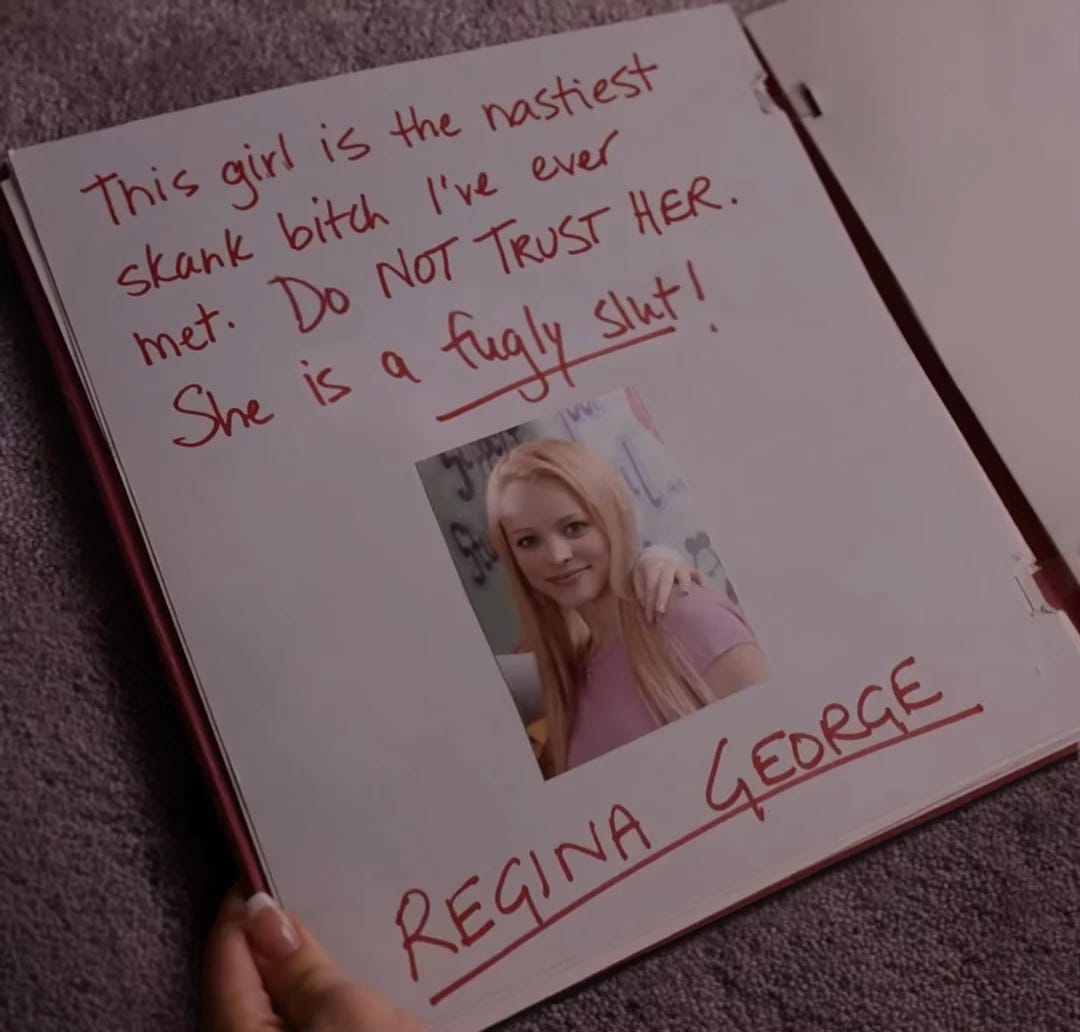 This girl is the nastiest
skank bitch I've ever
met. DO NOT TRUST HER.
She is a fugly slut!
REGINA GEORGE